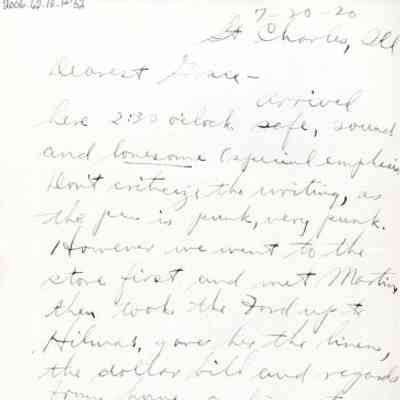 2006.62.16.1*52
7-20-20
St Charles, Ill
Dearest Grace-
Arrived
here 2:30 o'clock safe, sound
and lonesome (special emphasis
Don't criticize the writing, as
the pen is punk, very punk.
However we went to the
store first and met Martin,
then took the Ford up to
Hilmas, gave her the linens,
the dollar bill and regards